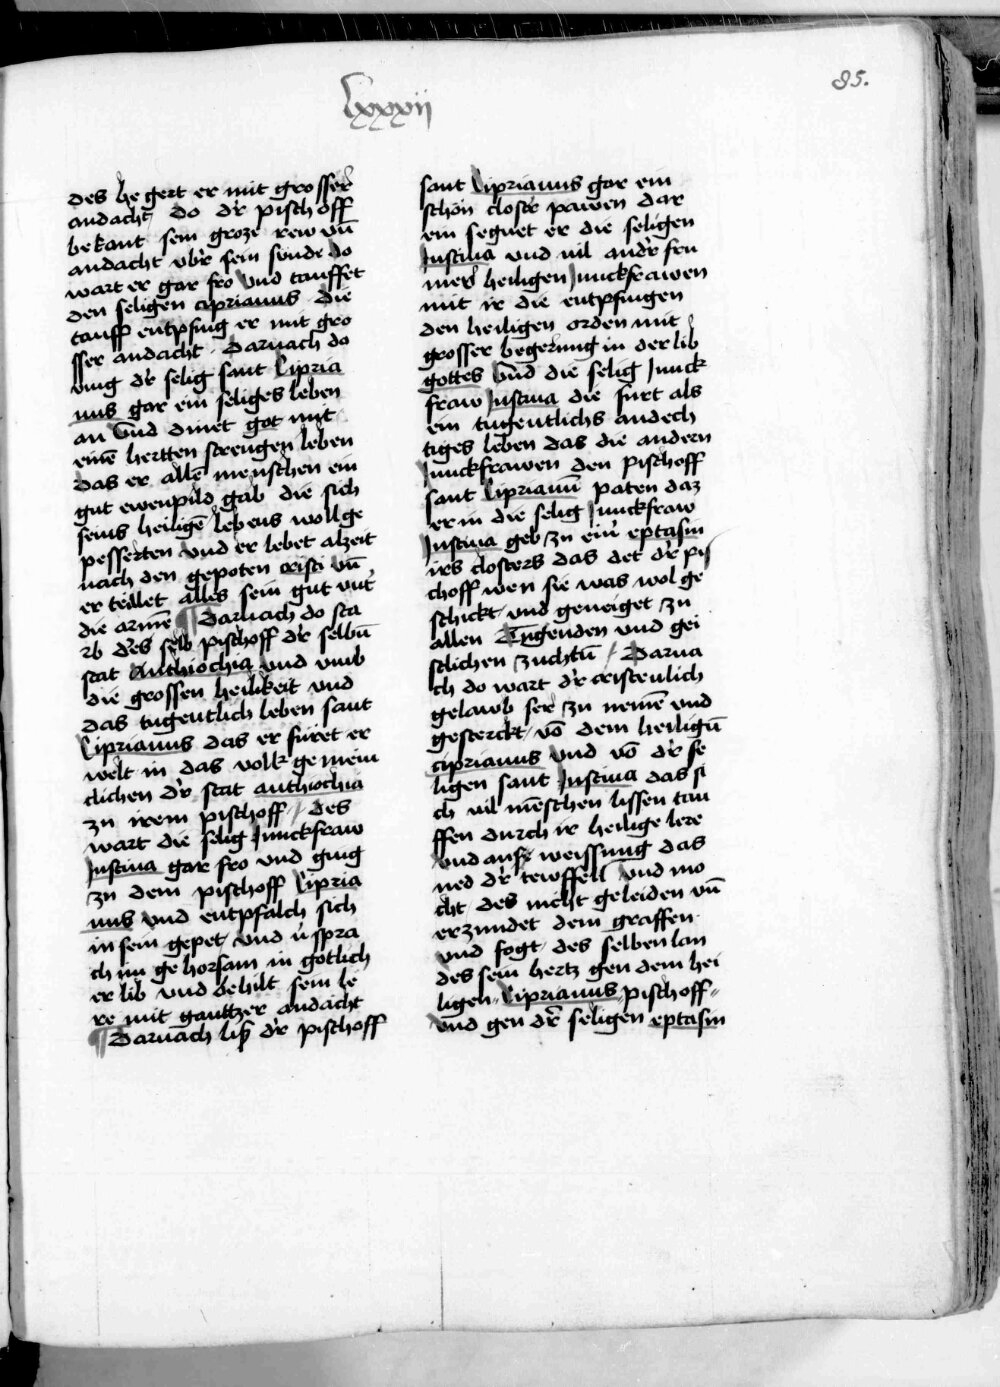 lxxxij
85.
des begert er mit grosser
andacht do dr pischoff
bekant sein groze rew vnd
andacht vbr sein sunde do
wart er gar fro vnd tauffet
den seligen ciprianus die
tauff entpfing er mit gro
sser andacht · Darnach do
ving dr selig sant Cipria
nus gar ein seliges leben
an vnd dinet got mit
einē hertten strengen leben
das er allē menschen ein
gut ewenpild gab die sich
seins heiligē lebens woll ge
pesserten vnd er lebet alzeit
nach den gepoten cristi vn̄
er teillet alles sein gut vnt'
die armē ¶ Darnach do sta
rb des selb pischoff dr selbn̄
stat Anthiochia vnd vmb
die grossen heilikeit vnd
das tugentlich leben sant
Ciprianus das er füret er
welt in das volk gemein
clichen dr stat anthiochia
zu irem pischoff / des
wart die selig Junckfraw
Justina gar fro vnd ging
zu dem pischoff Cipria
nus vnd entpfalch sich
in sein gepet vnd v̓spra
ch im gehorsam in gotlich
er lib vnd behilt sein le
re mit gantzer andacht
¶ Darnach liß dr pischoff
sant Ciprianus gar ein
schön closter pawen dar
ein segnet er die seligen
Justina vnd vil andr fru
mer heiligen Junckfrawen
mit ir die entpfingen
den heiligen orden mit
grosser begerung in der lib
gottes vnd die selig Junck
fraw Justina die furt als
ein tugentlichs andech
tiges leben das die andern
Junckfrawen den pischoff
sant Ciprianū paten daz
er in die selig Junckfraw
Justina geb zu einr eptasin
irs closters das det dr pis
choff wen sie was wol ge
schickt vnd geneiget zu
allen Tugenden vnd gei
stlichen zuchtn̄ / Darna
ch do wart dr cristenlich
gelawb ser zu nemē vnd
gesterckt vō dem heilign̄
ciprianus vnd vō dr se
ligen sant Justina das si
ch vil mēschen lissen tau
ffen durch ir heilige lere
vnd ansz weissung das
ned dr tewffell vnd mo
cht des nicht geleiden vn̄
erzundet dem graffen
vnd fogt des selben lan
des sein hertz gen dem hei
ligen Ciprianus pischoff
vnd gen dr seligen eptasin